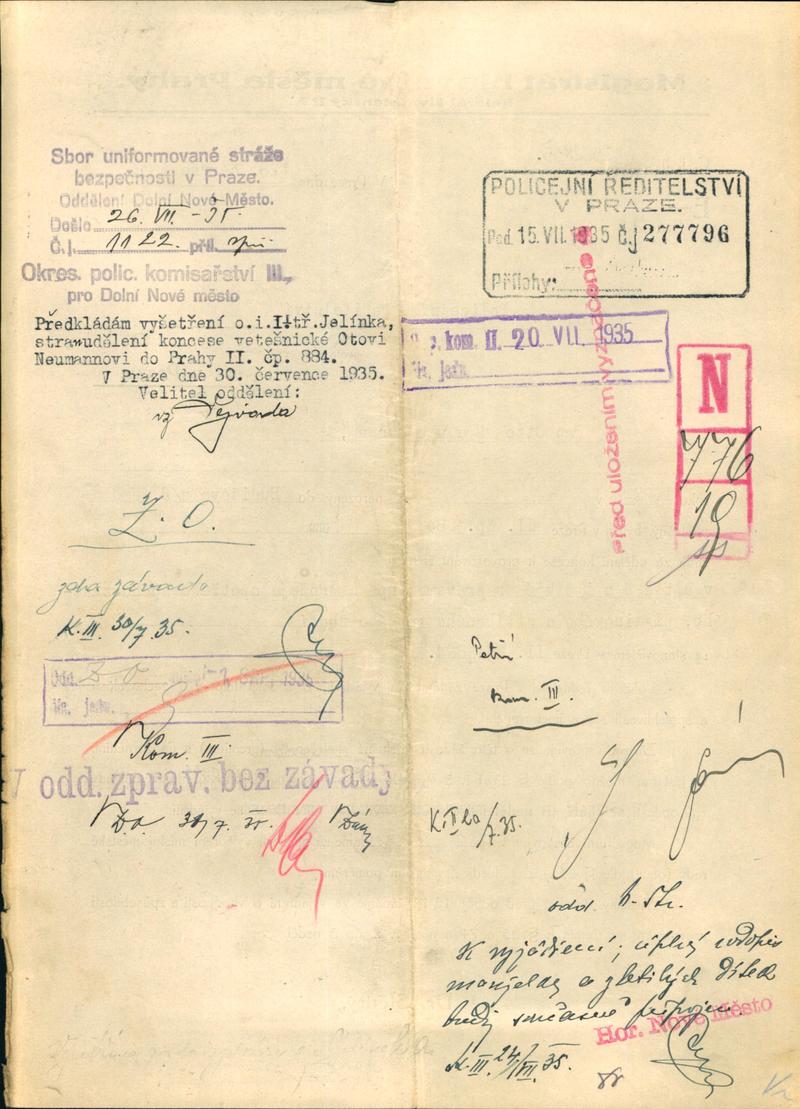 Sbor uniformované stráže
bezpečnosti v Praze.
Oddělení Dolní Nové Město.
Došlo 26. VII. - 35.
Č.j. 1122. příl.
Okres. polic. komisařství III.,
pro Dolní Nové město
Předkládám vyšetření o.i.I.tř.Jelínka,
stran udělení koncese vetešnické Otovi
Neumannovi do Prahy II. čp. 884.
V Praze dne 30. července 1935.
Velitel oddělení:
Z. O.
zda závada
K. III. 30/7. 35.
Odd. Z O 1935
Na. jedn.
Kom. III.
V odd. zprav. bez závady
Z.O. 31/7. 35.
POLICEJNÍ ŘEDITELSTVÍ
V PRAZE.
Pod. 15. VII. 1935 č.j 277796
Přílohy:
kom. II. 20. VII. 1935
Na. jedn.
před uložením vyznačeno
N
776
19
Petří
kom. III.
K. II 20/7. 35.
odd. h. St.
K vyjádření; úplný
manželky a zletilých dítek
budiž současně připojen.
Hor. Nové Město
K. III. 24/VII. 35.